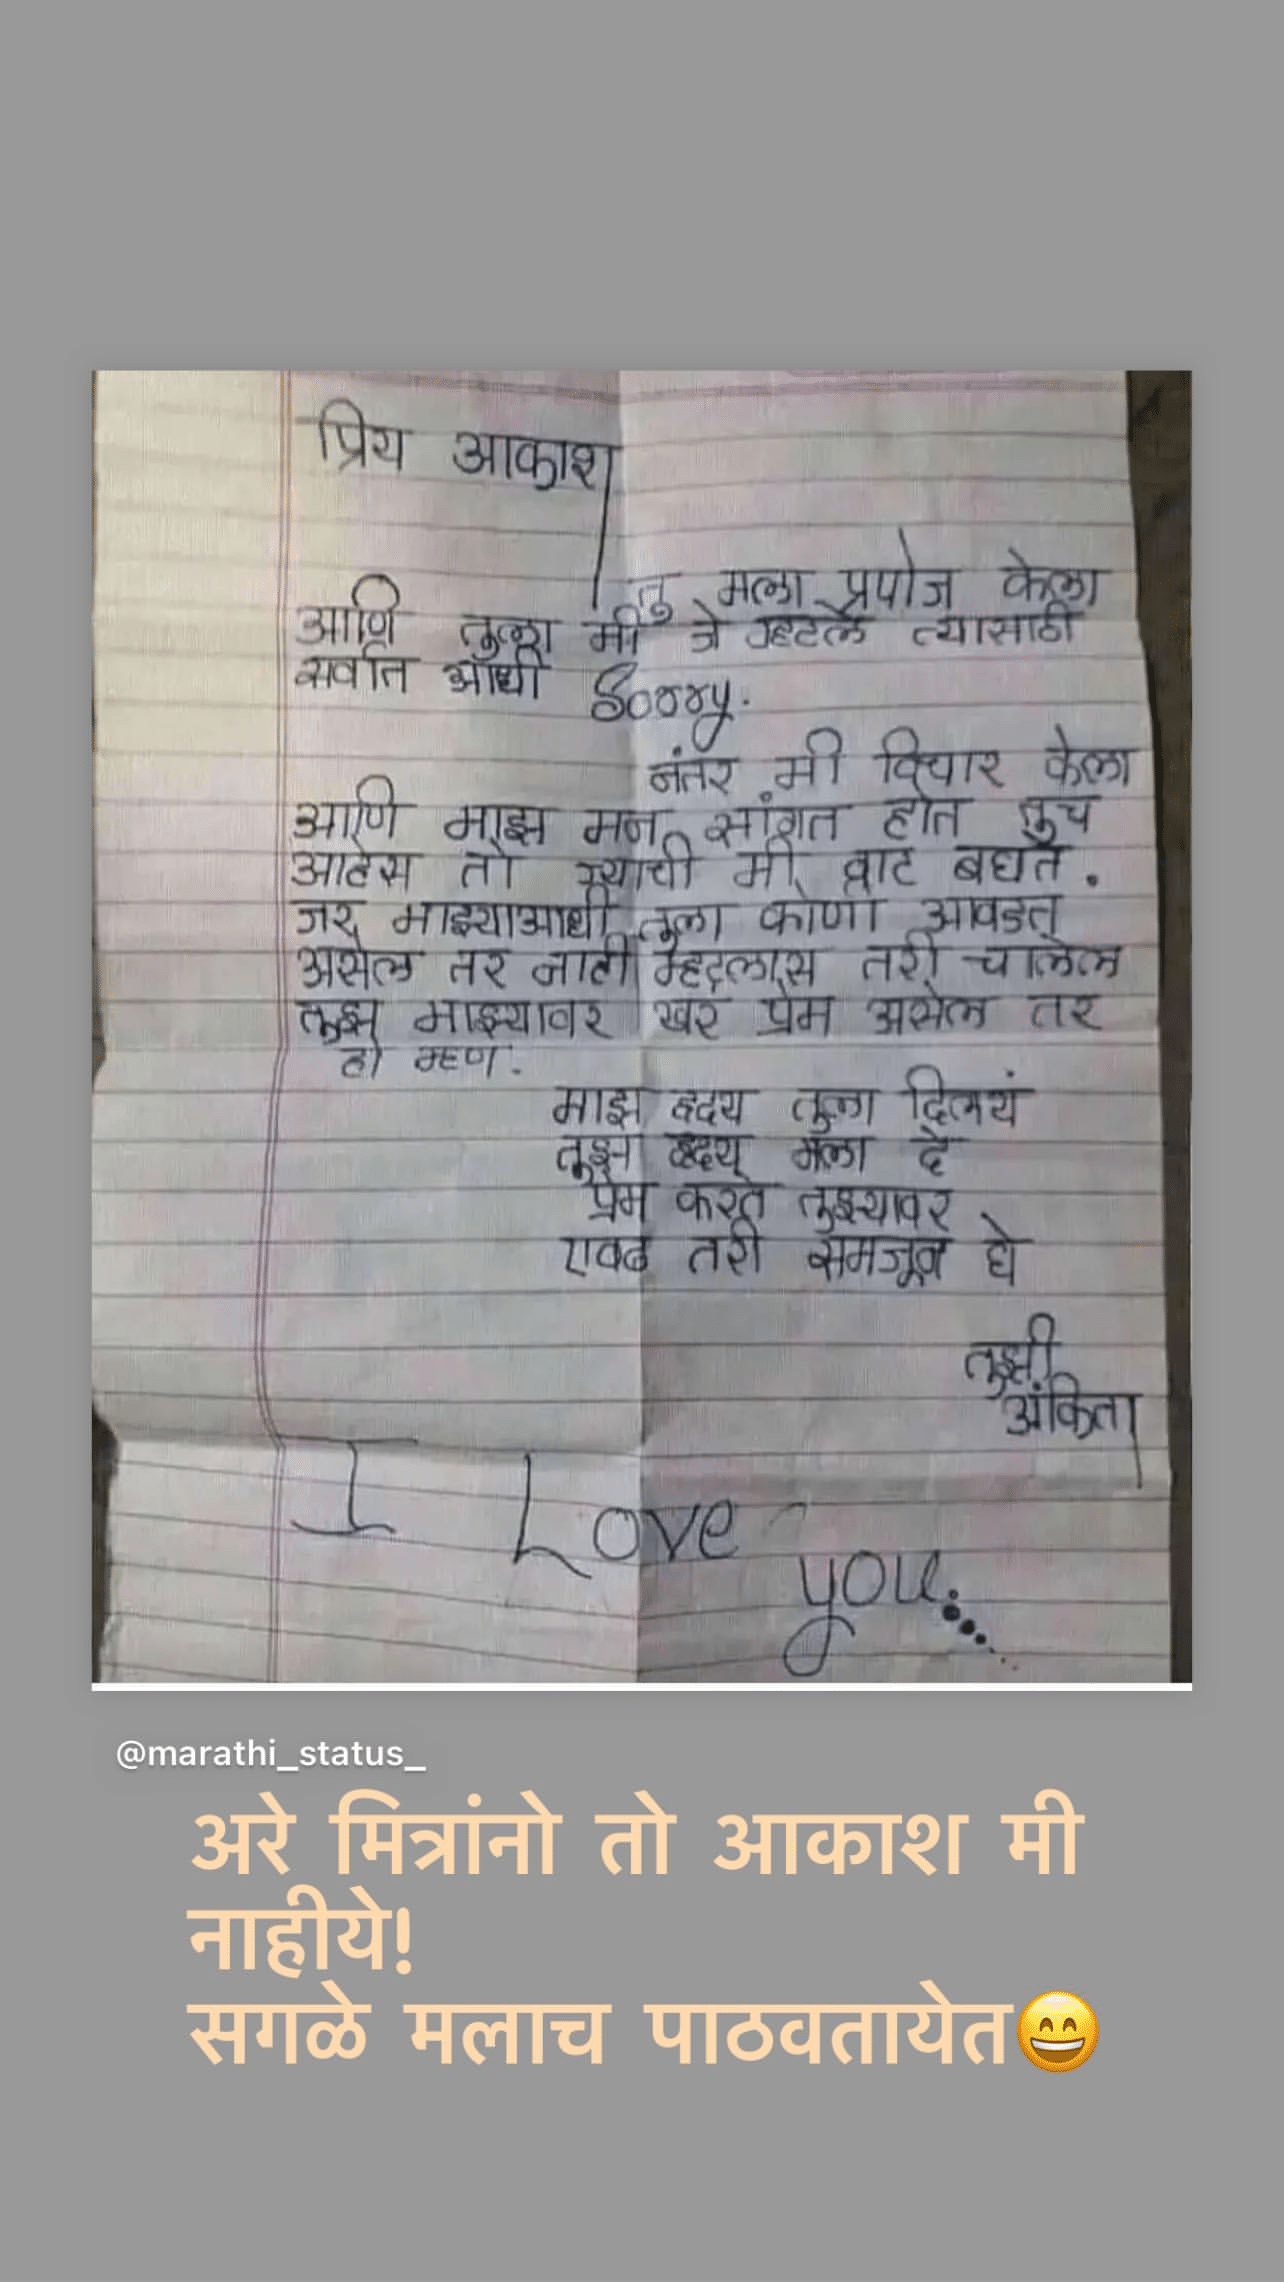 प्रिय आकाश
तु मला प्रपोज केला
आणि तुला मी जे म्हटले त्यासाठी
सर्वात आधी Sorry.
नंतर मी विचार केला
आणि माझ मन सांगत होत तुच
आहेस तो ज्याची मी वाट बघते.
जर माझ्याआधी तुला कोणी आवडत
असेल तर नाही म्हटलास तरी चालेल
तुझ माझ्यावर खर प्रेम असेल तर
हो म्हण.
माझ ह्दय तुला दिलयं
तुझ ह्दय मला दे
प्रेम करते तुझ्यावर
एवढ तरी समजून घे
तुझी
अंकिता
I Love
you....
@marathi_status_
अरे मित्रांनो तो आकाश मी
नाहीये!
सगळे मलाच पाठवतायेत😄